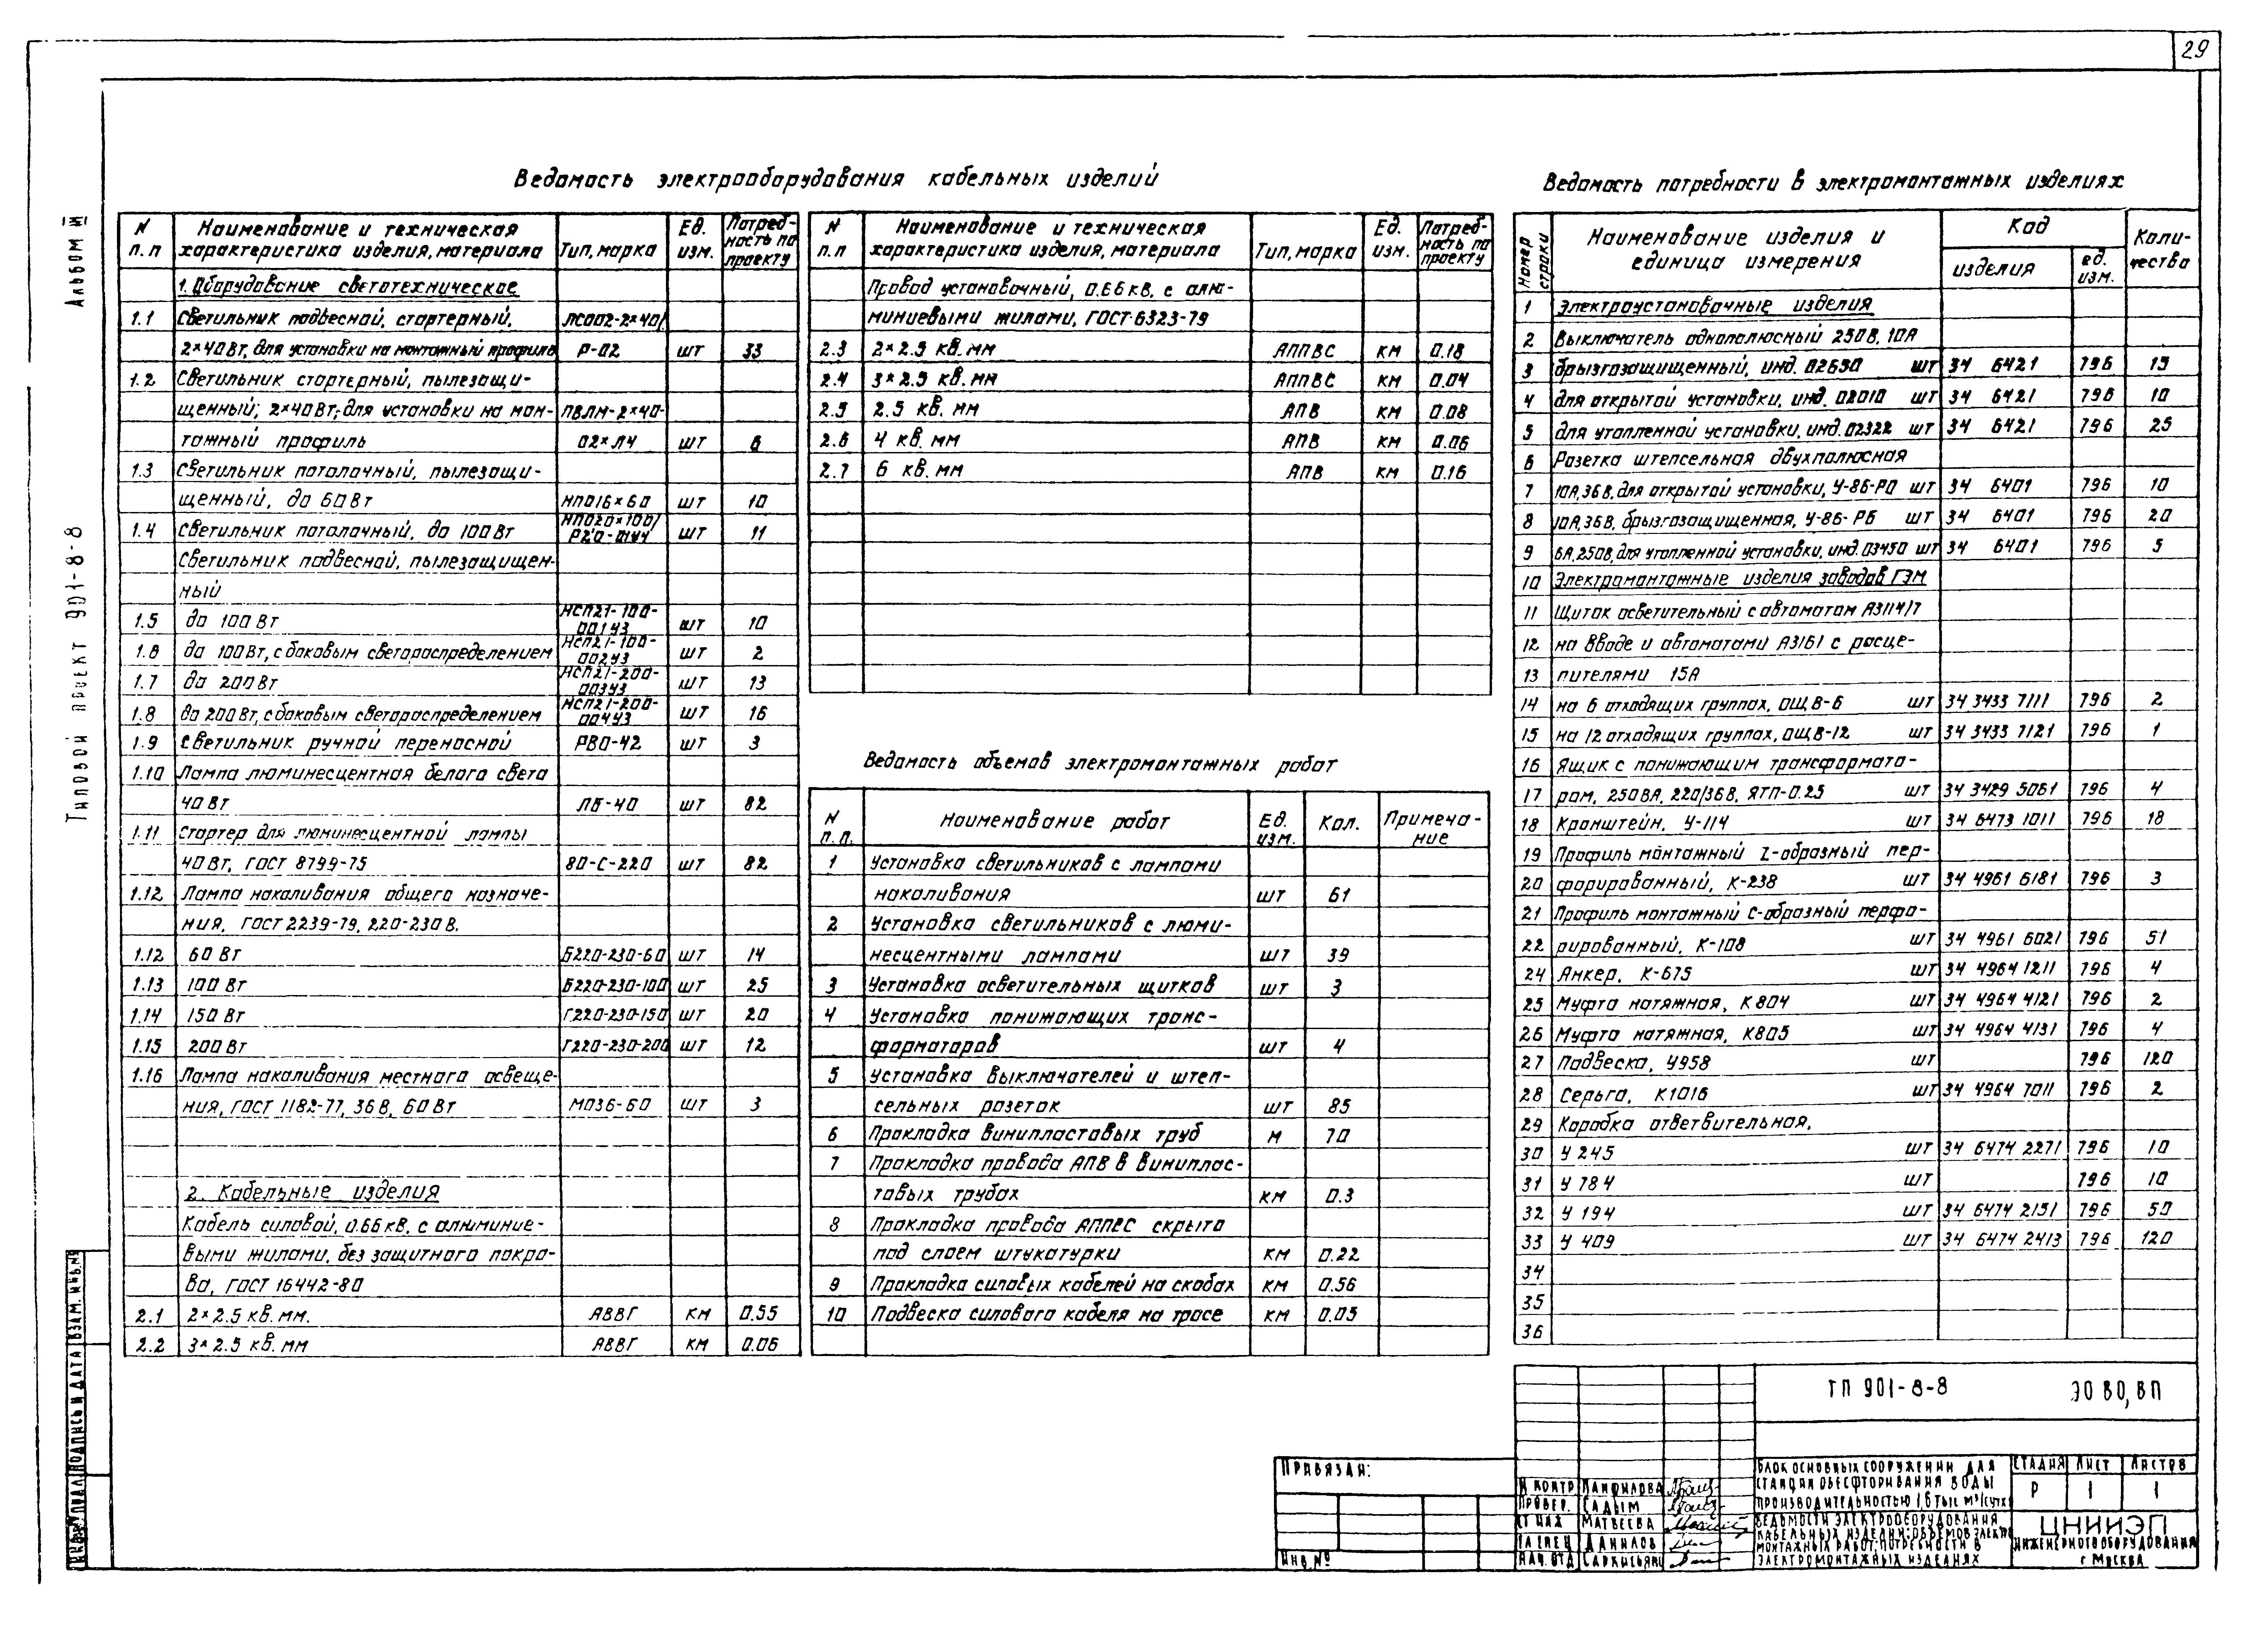 29
Альбом III
Типовой проект 901-8-8
Ведомость электрооборудования кабельных изделий
N п.п Наименование и техническая характеристика изделия, материала Тип, марка Ед. изм. Потреб-ность по проекту
1. Оборудование светотехническое
1.1 Светильник подвесной, стартерный, ЛСО02-2×40/
2×40 Вт, для установки на монтажный профиль Р-02 шт 33
1.2 Светильник стартерный, пылезащи-
щенный, 2×40 Вт, для установки на мон- ПВЛМ-2×40-
тажный профиль 02×Л4 шт 6
1.3 Светильник потолочный, пылезащи-
щенный, до 60 Вт НПО16×60 шт 10
1.4 Светильник потолочный, до 100 Вт НПО20×100/ Р2'0-01У4 шт 11
Светильник подвесной, пылезащищен-
ный
1.5 до 100 Вт НСП21-100-001У3 шт 10
1.6 до 100 Вт, с боковым светораспределением НСП21-100-002У3 шт 2
1.7 до 200 Вт НСП21-200-003У3 шт 13
1.8 до 200 Вт, с боковым светораспределением НСП21-200-004У3 шт 16
1.9 Светильник ручной переносной РВО-42 шт 3
1.10 Лампа люминесцентная белого света
40 Вт ЛБ-40 шт 82
1.11 Стартер для люминесцентной лампы
40 Вт, ГОСТ 8799-75 80-С-220 шт 82
1.12 Лампа накаливания общего назначе-
ния, ГОСТ 2239-79, 220-230 В.
1.12 60 Вт Б220-230-60 шт 14
1.13 100 Вт Б220-230-100 шт 25
1.14 150 Вт Г220-230-150 шт 20
1.15 200 Вт Г220-230-200 шт 12
1.16 Лампа накаливания местного освеще-
ния, ГОСТ 1182-77, 36 В, 60 Вт МО36-60 шт 3
2. Кабельные изделия
Кабель силовой, 0.66 кВ, с алюминие-
выми жилами, без защитного покро-
ва, ГОСТ 16442-80
2.1 2×2.5 кв. мм. АВВГ км 0.55
2.2 3×2.5 кв. мм АВВГ км 0.06
N п.п Наименование и техническая характеристика изделия, материала Тип, марка Ед. изм. Потреб-ность по проекту
Провод установочный, 0.66 кВ, с алю-
миниевыми жилами, ГОСТ-6323-79
2.3 2×2.5 кв. мм АППВС км 0.18
2.4 3×2.5 кв. мм АППВС км 0.04
2.5 2.5 кв. мм АПВ км 0.08
2.6 4 кв. мм АПВ км 0.06
2.7 6 кв. мм АПВ км 0.16
Ведомость объемов электромонтажных работ
N п.п. Наименование работ Ед. изм. Кол. Примеча-ние
1 Установка светильников с лампами
накаливания шт 61
2 Установка светильников с люми-
несцентными лампами шт 39
3 Установка осветительных щитков шт 3
4 Установка понижающих транс-
форматоров шт 4
5 Установка выключателей и штеп-
сельных розеток шт 85
6 Прокладка винипластовых труб м 70
7 Прокладка провода АПВ в виниплас-
товых трубах км 0.3
8 Прокладка провода АППВС скрыто
под слоем штукатурки км 0.22
9 Прокладка силовых кабелей на скобах км 0.56
10 Подвеска силового кабеля на тросе км 0.05
Ведомость потребности в электромонтажных изделиях
Номер строки Наименование изделия и единица измерения Код изделия ед. изм. Коли-чество
1 Электроустановочные изделия
2 Выключатель однополюсный 250 В, 10А
3 брызгозащищенный, инд. 02650 шт 34 6421 796 15
4 для открытой установки, инд. 02010 шт 34 6421 796 10
5 для утопленной установки, инд. 02322 шт 34 6421 796 25
6 Розетка штепсельная двухполюсная
7 10А, 36 В, для открытой установки, У-86-РО шт 34 6401 796 10
8 10А, 36 В, брызгозащищенная, У-86-РБ шт 34 6401 796 20
9 6А, 250В, для утопленной установки, инд. 03450 шт 34 6401 796 5
10 Электромонтажные изделия заводов ГЭМ
11 Щиток осветительный с автоматом А3114/7
12 на вводе и автоматами А3161 с расце-
13 пителями 15А
14 на 6 отходящих группах, ОЩВ-6 шт 34 3433 7111 796 2
15 на 12 отходящих группах, ОЩВ-12 шт 34 3433 7121 796 1
16 Ящик с понижающим трансформато-
17 ром, 250 ВА, 220/36 В, ЯТП-0.25 шт 34 3429 5061 796 4
18 Кронштейн, У-114 шт 34 6473 1011 796 18
19 Профиль монтажный Z-образный пер-
20 форированный, К-238 шт 34 4961 6181 796 3
21 Профиль монтажный С-образный перфо-
22 рированный, К-108 шт 34 4961 6021 796 51
24 Анкер, К-675 шт 34 4964 1211 796 4
25 Муфта натяжная, К804 шт 34 4964 4121 796 2
26 Муфта натяжная, К805 шт 34 4964 4131 796 4
27 Подвеска, У958 шт 796 120
28 Серьга, К1016 шт 34 4964 7011 796 2
29 Коробка ответвительная,
30 У 245 шт 34 6474 2271 796 10
31 У 784 шт 796 10
32 У 194 шт 34 6474 2151 796 50
33 У 409 шт 34 6474 2413 796 120
34
35
36
ТП 901-8-8 ЭО ВО, ВП
Привязан:
Инв. №
Н контр Панфилова
Провер. Садым
Ст инж Матвеева
Гл спец Данилов
Нач. отд
Блок основных сооружений для станции обесфторивания воды производительностью 1,6 тыс м³/сутк
Ведомости электрооборудования кабельных изделий; объемов электро монтажных работ; потребности в электромонтажных изделиях
Стадия Лист Листов
Р 1 1
ЦНИИЭП
инженерного оборудования
г Москва
Взам. инв. №
Подпись и дата
Инв. № подл